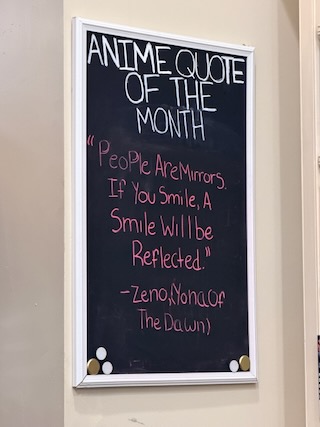 ANIME QUOTE
OF THE
MONTH
"PeoPle Are Mirrors.
If You Smile, A
Smile Will be
Reflected."
-Zeno,(Yona Of
The Dawn)